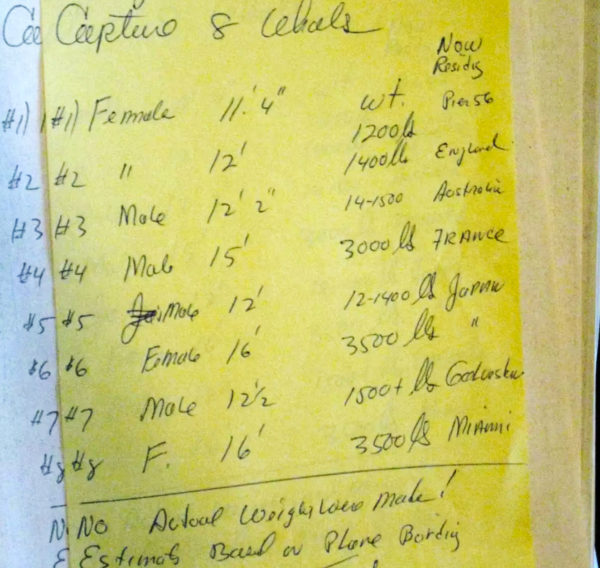 Ca Capture 8 Whals
Now
Residig
#1) #1) Female 11' 4" wt. Pier 56
1200 lb
#2 #2 " 12' 1400 lb England
#3 #3 Male 12' 2" 14-1500 Australia
#4 #4 Male 15' 3000 lb FRANCE
#5 #5 Male 12' 12-1400 lb JAPAN
#6 #6 Female 16' 3500 lbs "
#7 #7 Male 12½ 1500+ lb
#8 #8 F. 16' 3500 lb Miami
N No Actual Weighs were made!
E Estimats Based on Plane Bording